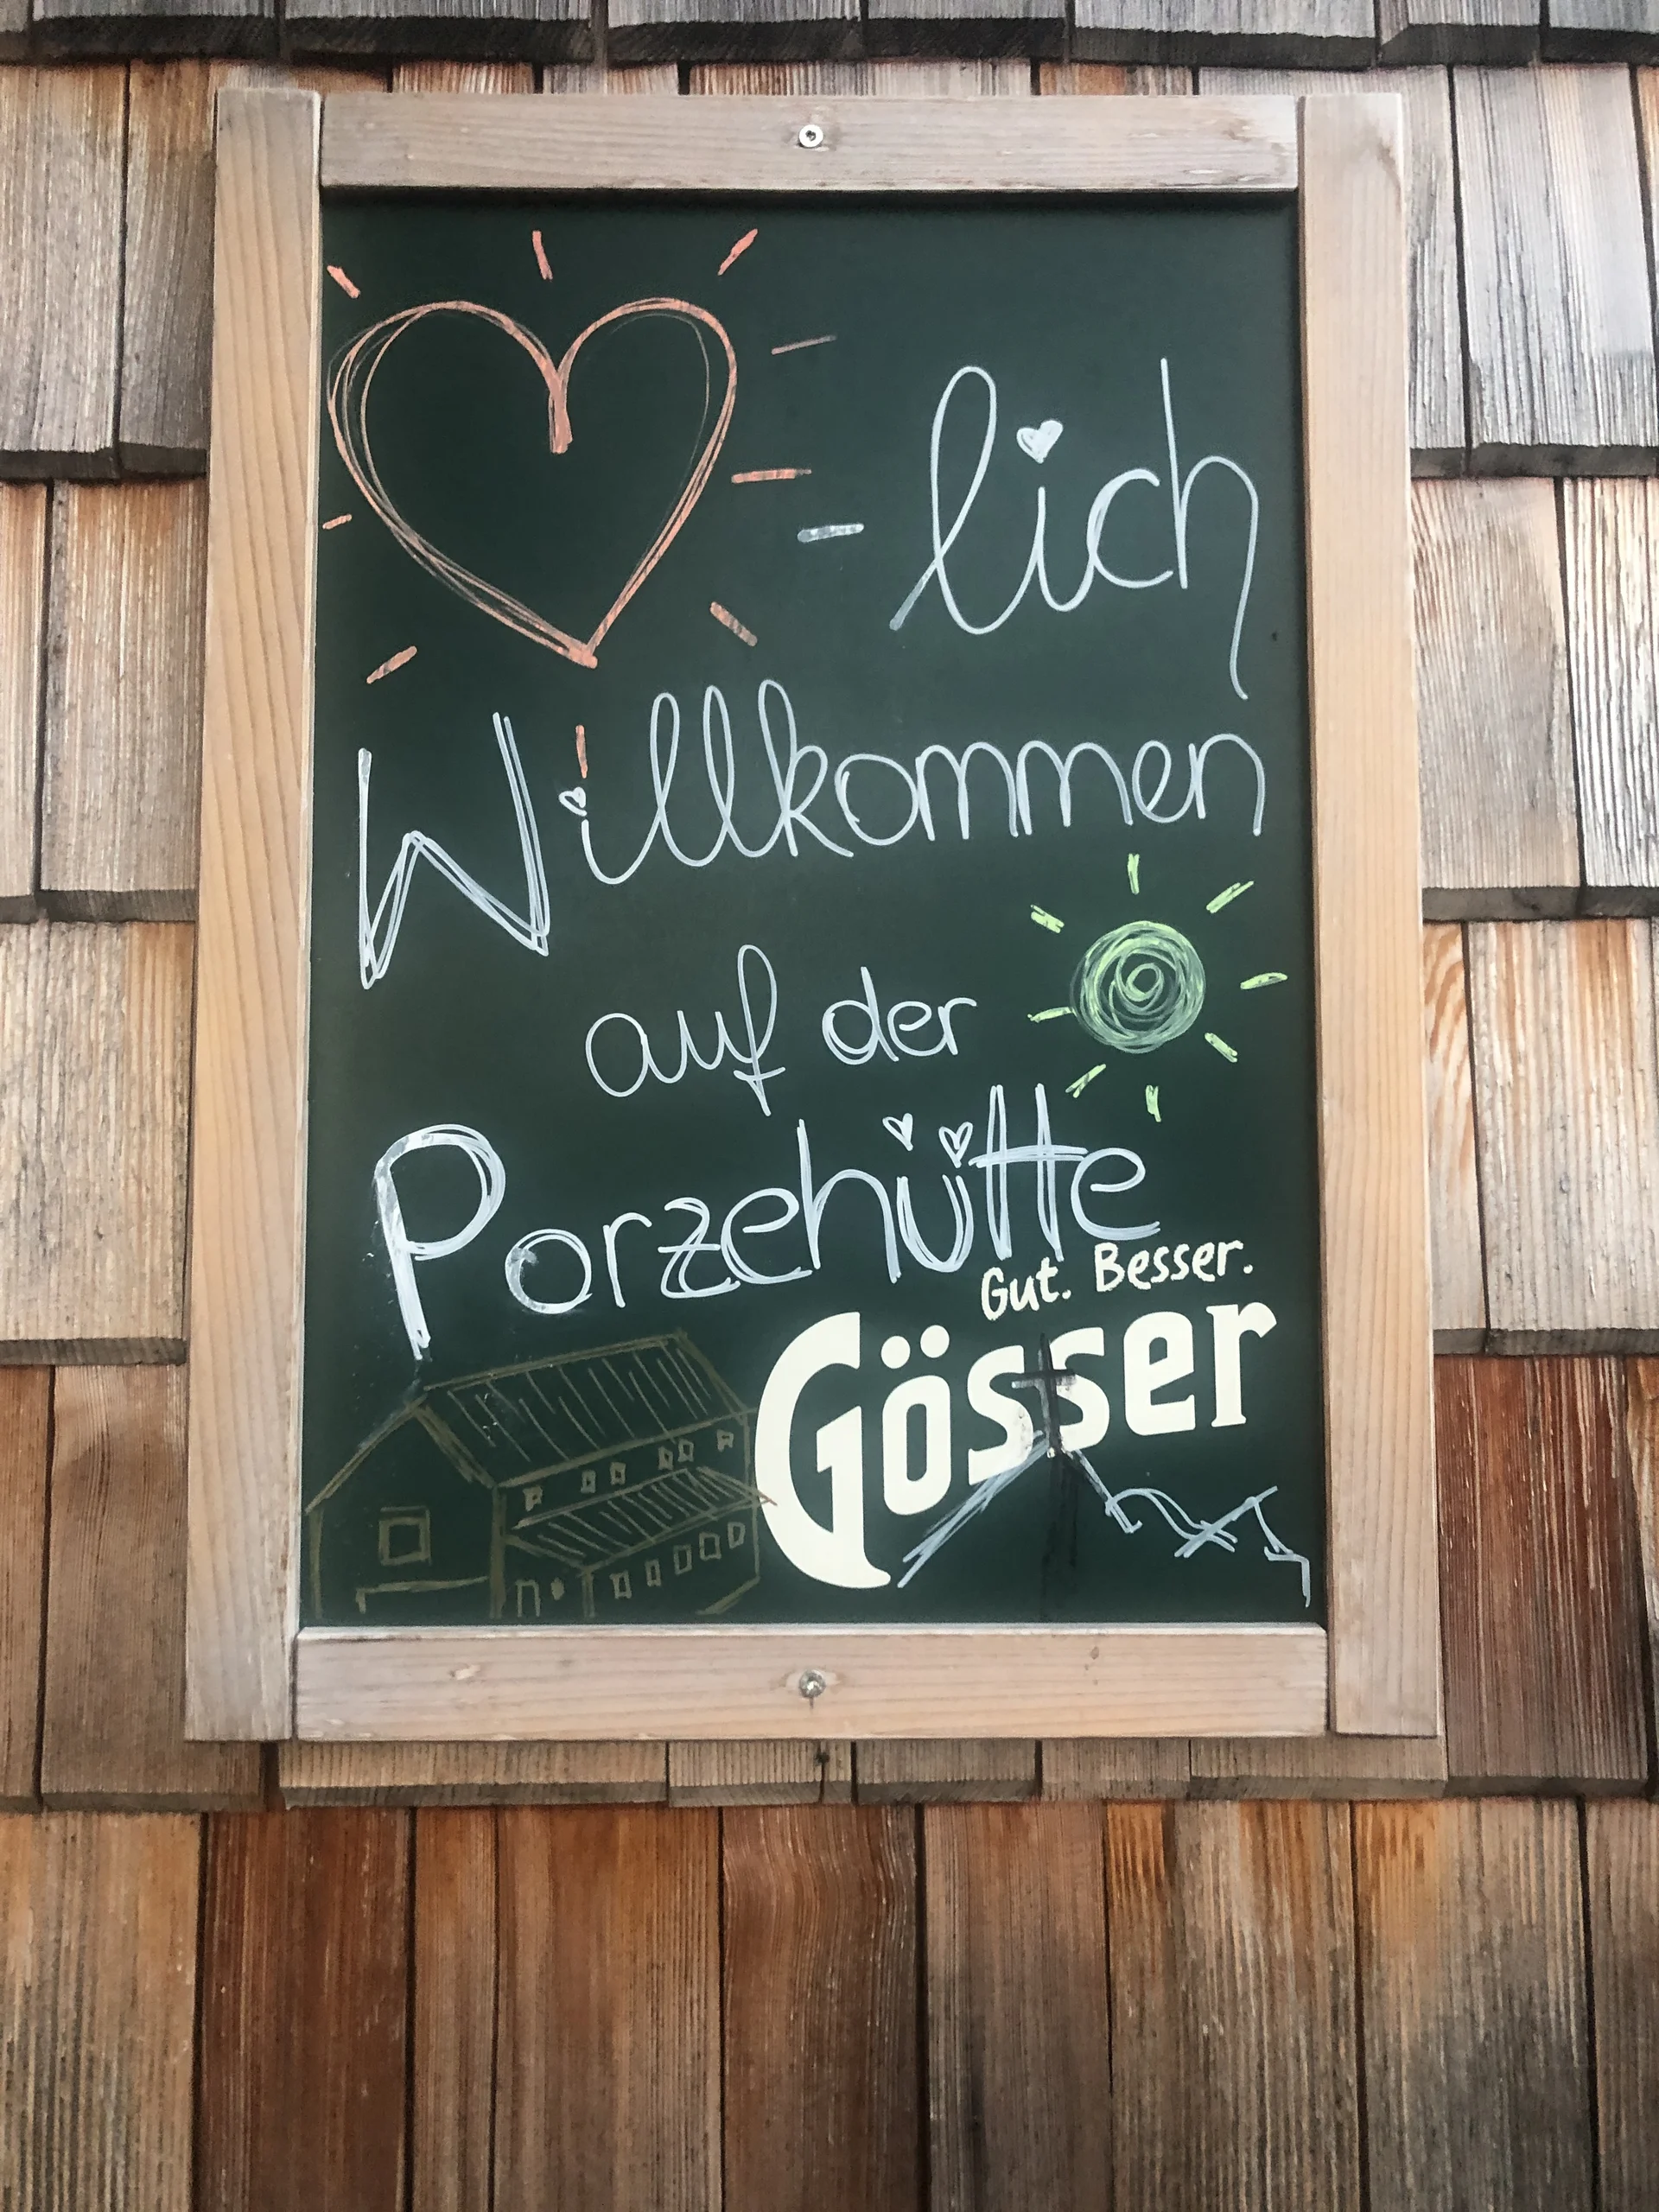 -lich
Willkommen
auf der
Porzehütte
Gut. Besser.
Gösser